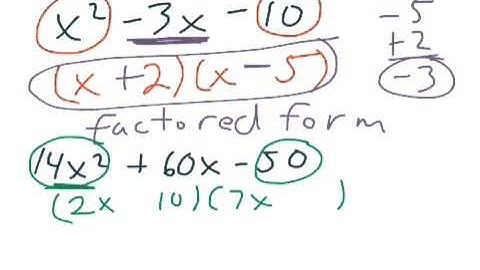 x² - 3x - 10
- 5
+ 2
- 3
(x + 2)(x - 5)
factored form
14x² + 60x - 50
(2x 10)(7x )